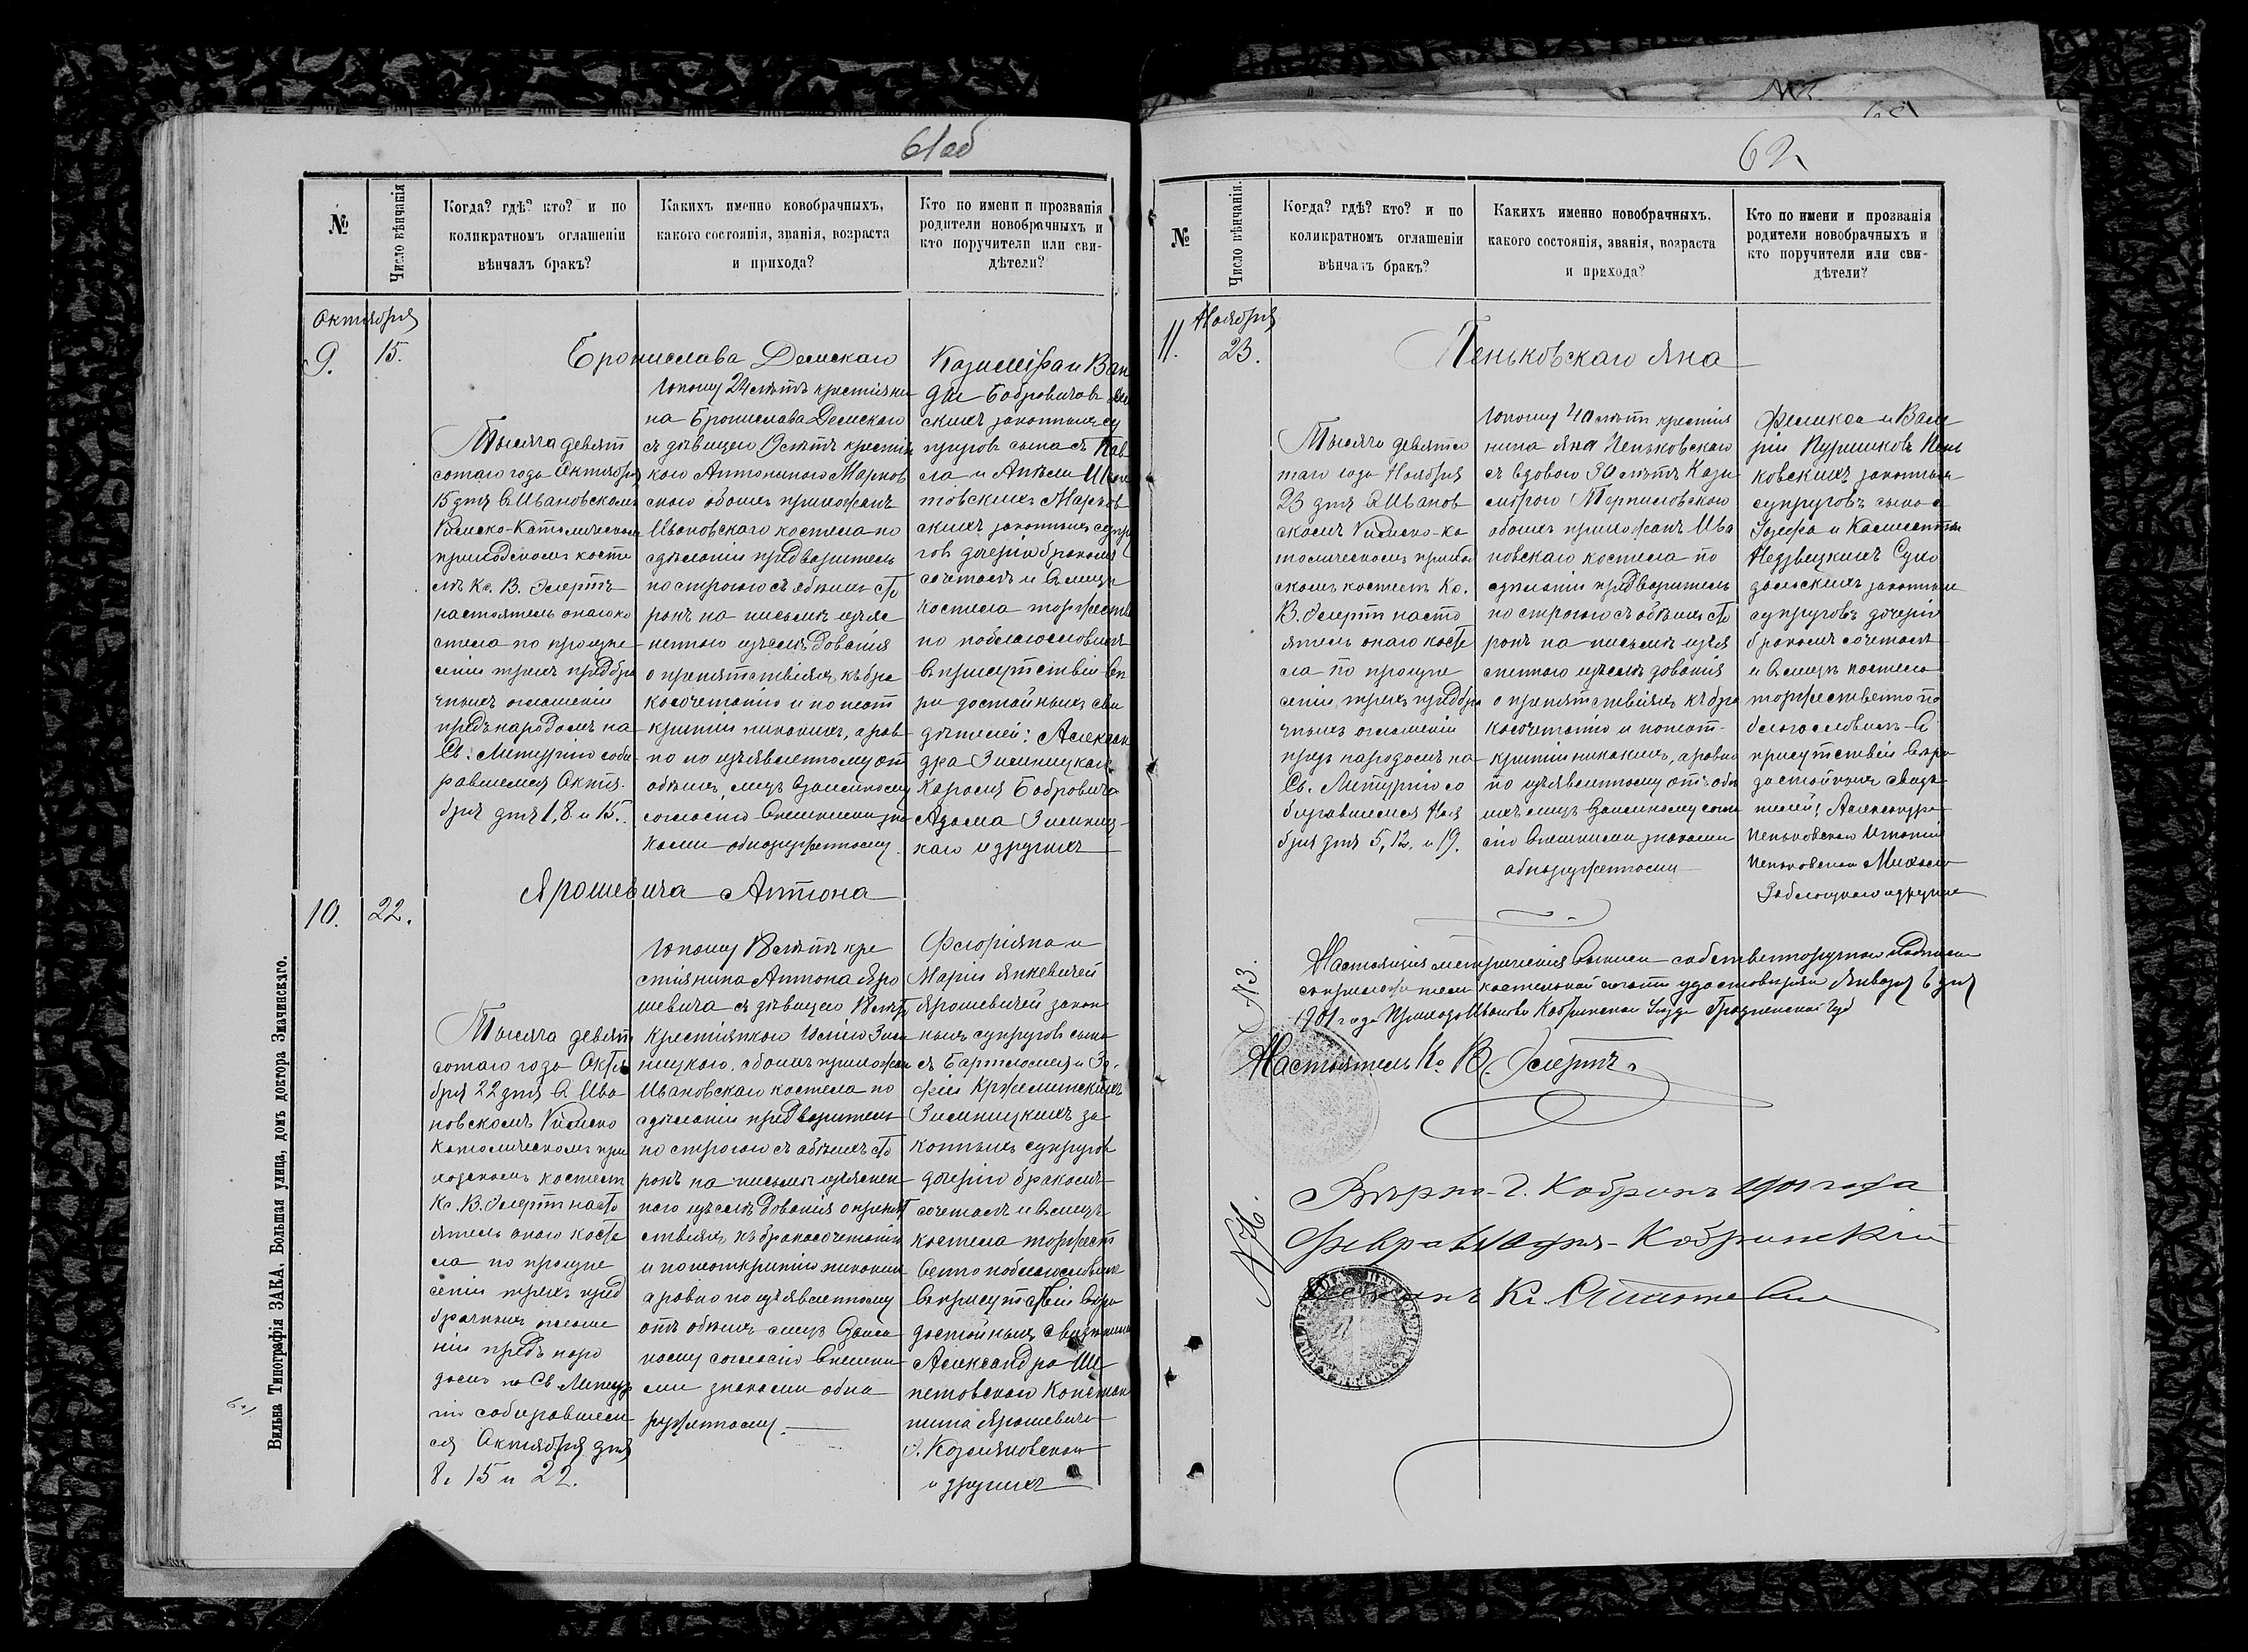 61об
№
Число вѣнчанія
Когда? гдѣ? кто? и по
коликратномъ оглашеніи
вѣнчалъ бракъ?
Какихъ именно новобрачныхъ,
какого состоянія, званія, возраста
и прихода?
Кто по имени и прозванія
родители новобрачныхъ и
кто поручители или сви-
дѣтели?
Октября
9.
15.
Бронислава Демскаго
Тысяча девят
сотаго года Октября
15 дня въ Ивановскомъ
Римско-Католическомъ
приходскомъ косте
лѣ Кс. В. Эльертъ
настоятель онаго ко
стела по произне
сеніи трехъ предбра
чныхъ оглашеній
предъ народомъ на
Св: Литургію соби
равшемся Октя-
бря дня 1, 8 и 15.
Юношу 24 лѣтъ крестьяни
на Бронислава Демскаго
съ дѣвицею 19 лѣтъ крестьян
кою Антониною Марков
скою обоихъ прихожанъ
Ивановскаго костела по
сдѣланіи предваритель
но строгаго съ обѣихъ сто
ронъ на письмѣ изъяс
неннаго изслѣдованія
о препятствіяхъ къ бра
косочетанію и по неот
крытіи никакихъ, а рав
но по изъявленному от
обѣихъ лицъ взаимному
согласію внѣшними зна
ками обнаруженному.
Казиміра и Ван
ды Бобровичов Дем
скихъ законныхъ су
пруговъ сына съ Пав
ла и Анели
Марков
скихъ законныхъ супру
говъ дочерію бракомъ
сочеталъ и въ лицѣ
костела торжестве
но поблагословилъ
въ присутствіи вѣ
ры достойныхъ сви
дѣтелей: Алексан
дра Зменицкаго
Кароля Бобровича
Адама Змениц-
каго и другихъ
10.
22.
Ярошевича Антона
Тысяча девят
сотаго года Октя
бря 22 дня въ Ива
новскомъ Римско
Католическомъ при
ходскомъ костелѣ
Кс. В. Эльертъ насто
ятель онаго косте
ла по произне
сеніи трехъ пред
брачныхъ оглаше
ній предъ наро
домъ на Св Литур
гію собиравшем
ся Октября дня
8, 15 и 22.
Юношу 18 лѣтъ кре
стьянина Антона Яро
шевича съ дѣвицею 18 лѣтъ
Крестьянкою Юліею Зме
ницкою, обоихъ прихожан
Ивановскаго костела по
сдѣланіи предваритель
но строгаго съ обѣихъ сто
ронъ на письмѣ изъяснен
наго изслѣдованія о препят
ствіяхъ къ бракосочетанію
и по неоткрытіи никакихъ
а равно по изъявленному
отъ обѣихъ лицъ взаим
ному согласію внѣшни
ми знаками обна
руженному.
Флоріяна и
Маріи Янкевичей
Ярошевичей закон
ныхъ супруговъ сына
съ Бартломея и Зо-
фіи
Зменицкихъ за-
конныхъ супругов
дочерію бракомъ
сочеталъ и въ лицѣ
костела торжест
венно поблагословилъ
въ присутствіи вѣры
достойныхъ свидѣтелей
Александра
Констан
тина Ярошевича
и другихъ
Вильна Типографія ЗАКА, Большая улица, домъ доктора Змачинскаго.
62
№
Число вѣнчанія.
Когда? гдѣ? кто? и по
коликратномъ оглашеніи
вѣнчалъ бракъ?
Какихъ именно новобрачныхъ.
какого состоянія, званія, возраста
и прихода?
Кто по имени и прозванія
родители новобрачныхъ и
кто поручители или сви-
дѣтели?
Ноября
11.
23.
Пеньковскаго Яна
Тысяча девятсо
таго года Ноября
23 дня въ Иванов
скомъ Римско-ка
толическомъ приход
скомъ костелѣ Кс.
В. Эльертъ насто
ятель онаго косте
ла по произне
сеніи трехъ предбра
чныхъ оглашеній
предъ народомъ на
Св. Литургію со
биравшемся Ноя
бря дня 5, 12, и 19.
Юношу 40 лѣтъ крестья
нина Яна Пеньковскаго
съ вдовою 30 лѣтъ Кази
мірою
обоихъ прихожанъ Ива
новскаго костела по
сдѣланіи предваритель
но строгаго съ обѣихъ сто
ронъ на письмѣ изъя
сненнаго изслѣдованія
о препятствіяхъ къ бра
косочетанію и по неот-
крытіи никакихъ, а равно
по изъявленному отъ обѣ
ихъ лицъ взаимному согла
сію внѣшними знаками
обнаруженному
Феликса и Вале
ріи Пень
ковскихъ законныхъ
супруговъ сына съ
Іозефа и
законныхъ
супруговъ дочерію
бракомъ сочеталъ
и въ лицѣ костела
торжественно по
благословилъ въ
присутствіи вѣры
достойныхъ свидѣ
телей: Александра
Пеньковскаго
Пеньковскаго
и другихъ
Настоящія метрическія выписи собственноручною подписью
съ приложеніемъ костельной печати удостовѣряю Января 6 дня
1901 года Приходъ Иваново Кобринскаго Уѣзда Гродненской Губ
Настоятель Кс В. Эльертъ.
Вѣрно. Г. Кобринъ 1901 года
Февраля дня Кобринскій
Деканъ Кс.